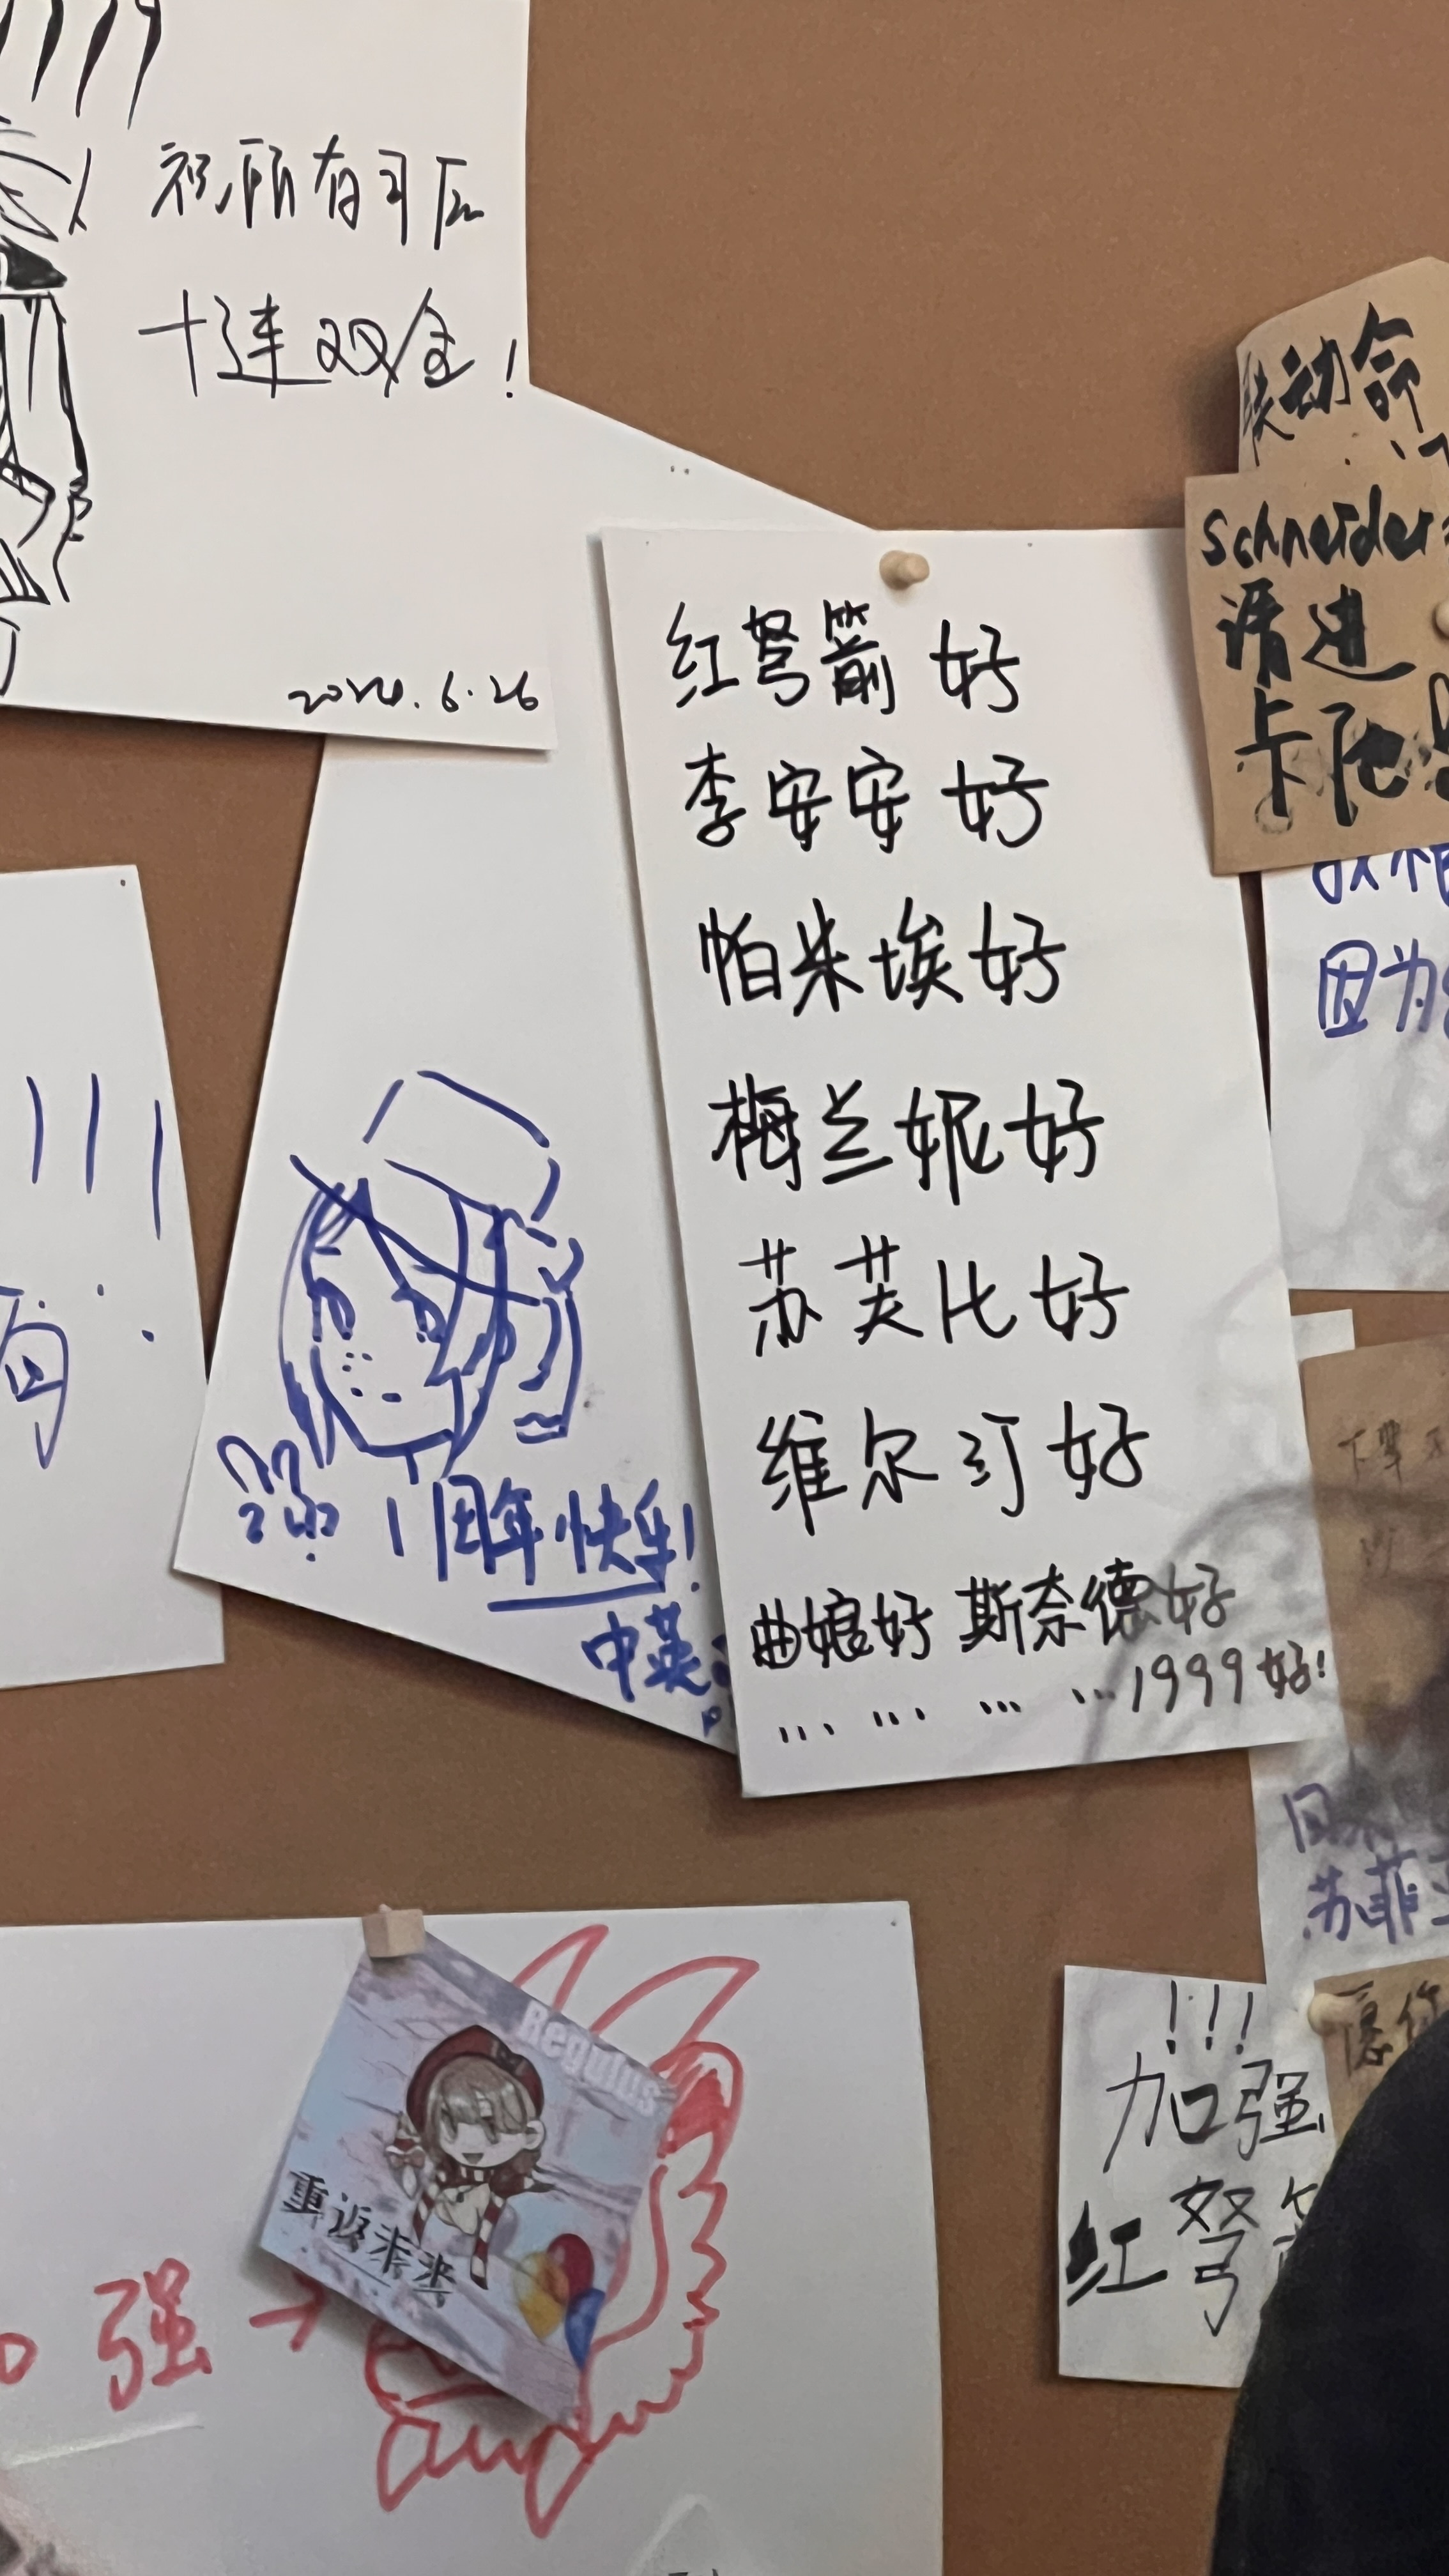 祝所有司辰
十连双金！
2024.6.26
联动命
Schneider
请进
卡池
红弩箭 好
李安安 好
帕米埃好
梅兰妮好
苏芙比好
维尔汀好
曲娘好 斯奈德好
… … … …1999好!
因为
1周年快乐!
中英
苏菲
Regulus
重返未来
强
!!!
加强
红弩